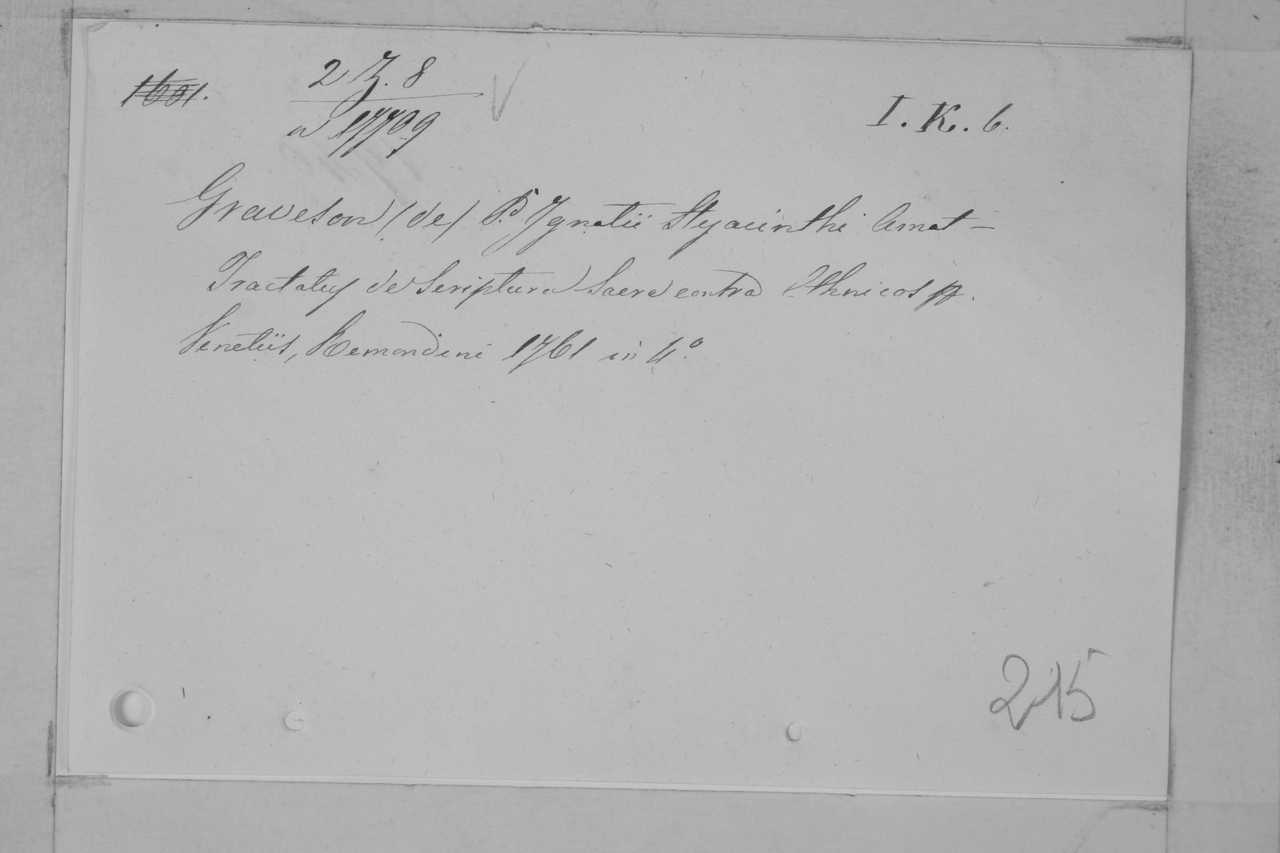 1601.
2 Z. 8
a 17709
I. K. 6.
Graveson (de) Ignatii Hyacinthi Amat –
Tractatus de Scriptura Sacra contra Ethnicos
Venetiis, Remondini 1761 in 4.º
215